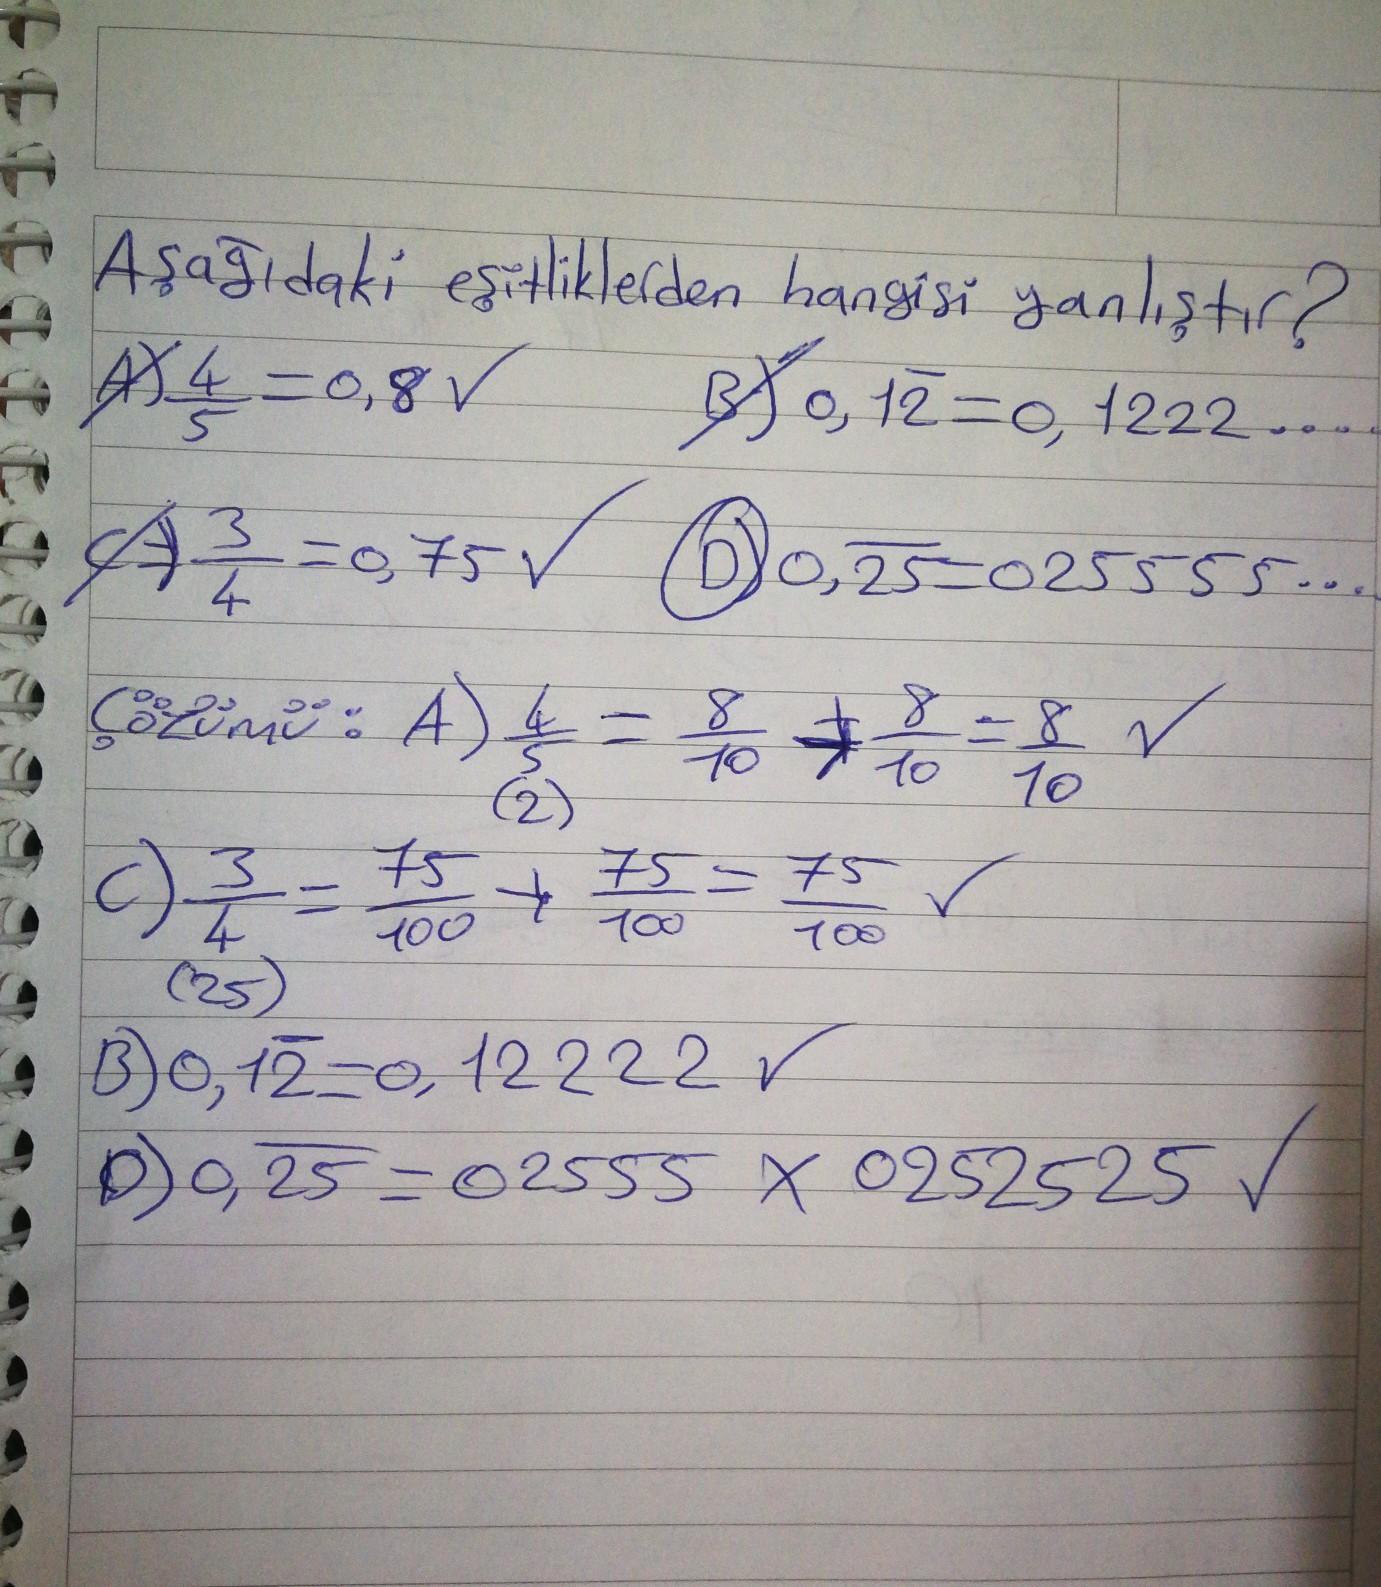 Aşağıdaki eşitliklerden hangisi yanlıştır?
A) 4/5 = 0,8 ✓ B) 0,12̅ = 0,1222....
C) 3/4 = 0,75 ✓ D) 0,2̅5̅ = 025555...
Çözümü: A) 4/5 = 8/10 → 8/10 = 8/10 ✓
(2)
C) 3/4 = 75/100 → 75/100 = 75/100 ✓
(25)
B) 0,12̅ = 0,12222 ✓
D) 0,2̅5̅ = 02555 X 0252525 ✓